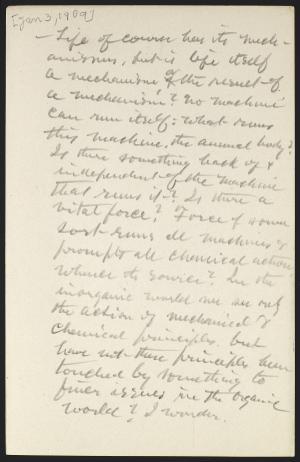 [Jan 3, 1909]
— Life of course has its mech-
anisms, but is life itself
a mechanism, or the result of
a mechanism? No machine
can run itself: what runs
this machine, the animal body?
Is there something back of &
independent of the machine
that runs it? Is there a
vital force? Force of some
sort runs all machines &
prompts all chemical action,
whence its source? In the
inorganic world we see only
the action of mechanical &
chemical principles. but
have not these principles been
touched by something to
finer issues in the organic
world? I wonder.